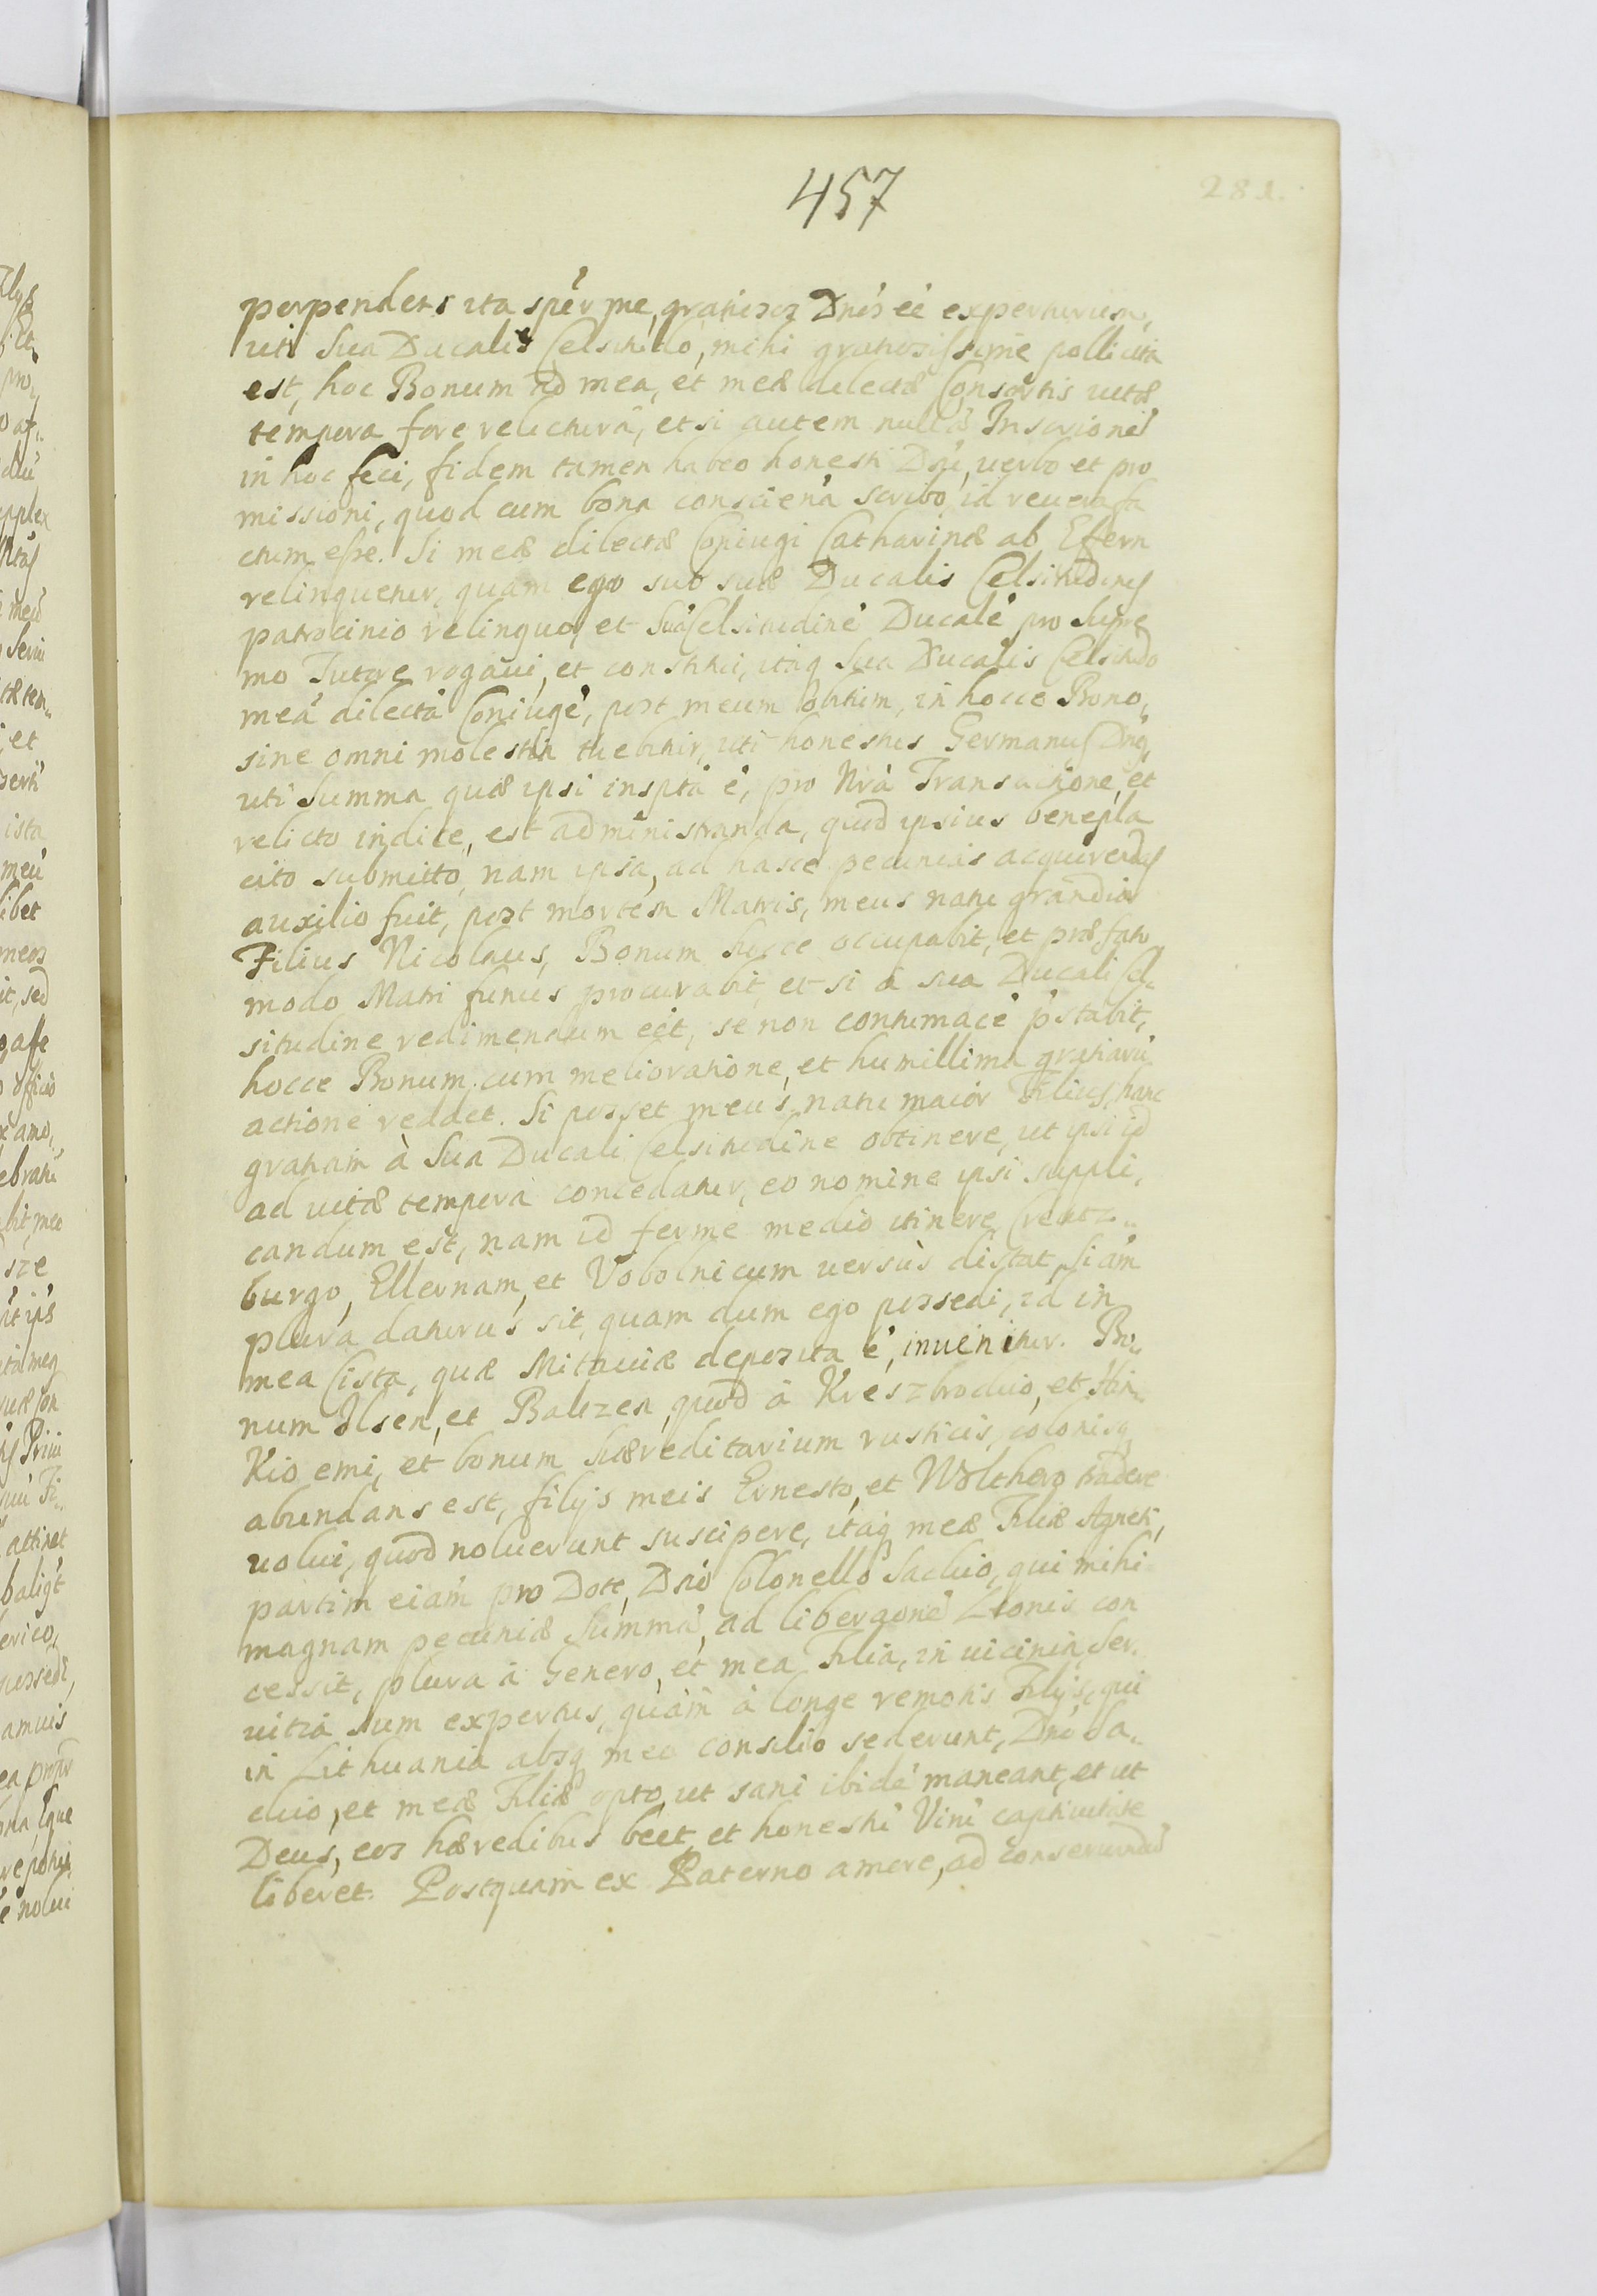 457
281.
perpendens ita sper me, gratiosos Dnos eé experturum,
uti Sua Ducalis Celsitudo, mihi gratiosissime pollicita
est, hoc Bonum ad mea, et meæ dilectæ Consortis uitæ
tempora fore relicturā, etsi autem nullā Inscrionē
in hoc feci, fidem tamen habeo honesti Dni, uerbo et pro
missioni, quod cum bona conscieña scribo, id reuera fa
ctum esse. Si meæ dilectæ Coniugi Catharinæ ab Efern
relinquetur, quam ego sub suæ Ducalis Celsitudinis
patrocinio relinquo, et Suā Celsitudinē Ducalē pro Supre
mo Tutore rogaui, et constitui, itaq Sua Ducalis Celsitudo
meā dilectā Coniugē, post meum obitum, in hocce Bono,
sine omni molestia tuebitur, uti honestus Germanus Dnō,
uti Summa quæ ipsi inspta é, pro Nrā Transactione, et
relicto indice, est administranda, quod ipsius benepla
cito submitto, nam ipsa, ad hasce pecunias acquirendas
auxilio fuit, post mortem Matris, meus natu grandior
Filius Nicolaus, Bonum hocce occupabit, et præfato
modo Matri funus procurabit, et si à sua Ducali Cel-
situdine redimendum erit, se non contumacē pstabit,
hocce Bonum cum melioratione, et humillima gratiarū
actione reddet. Si posset meus natu maior Filius, hanc
gratiam à Sua Ducali Celsitudine obtinere, ut ipsi id
ad uitæ tempora concedatur, eo nomine ipsi suppli,
candum est, nam id ferme medio itinere Creutz-
burgo, Ellernam, et Vobolnicum uersùs distat. Si am
plura daturus sit, quam dum ego possedi, id in
mea Cista, quæ Mitauiæ deposita é, inuenitur. Bo,
num Ilsen, et Baltzen, quod à Kreszbrodio, et
Kio emi, et bonum hæreditarium rusticis, colonisq
abundans est, filijs meis Ernesto, et Wolthero tradere
uolui, quod noluerunt suscipere, itaq meæ Filiæ Agneti,
partim eiam pro Dote, Dnō Colonello Sackio, qui mihi
magnam pecuniæ Summā, ad liberaonē Leonis con
cessit, plura à Genero, et mea Filia, in uicinia Ser-
uitia sum expertus, quàm à longe remotis Filijs, qui
in Lithuania absq meo consilio sederunt, Dno Sa-
ckio, et meæ Filiæ opto, ut sani ibidē maneant, et ut
Deus, eos hæredibus beet, et honesti Viri captiuitate
liberet. Postquam ex Paterno amore, ad conseruandā